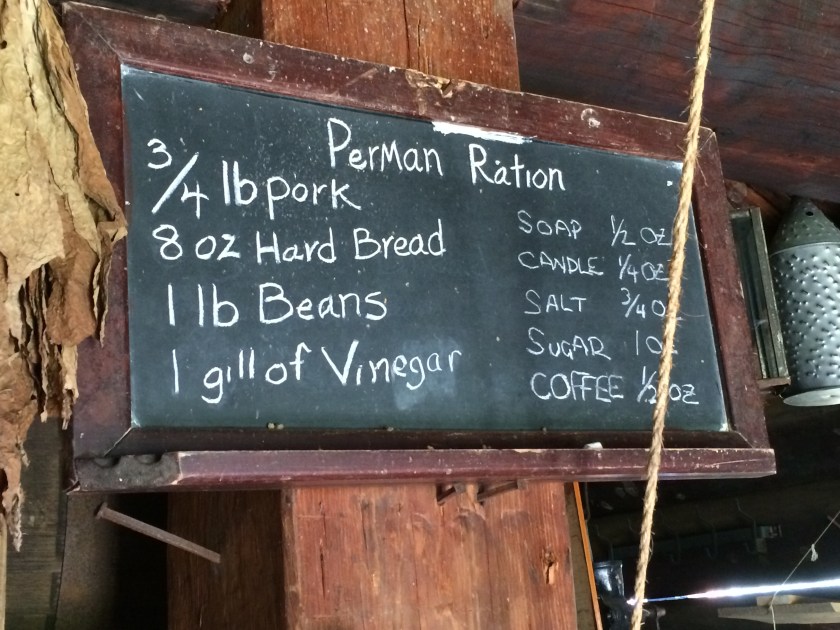 PerMan Ration
3/4 lb pork
8 oz Hard Bread
1 lb Beans
1 gill of Vinegar
SOAP 1/2 OZ
CANDLE 1/4 OZ
SALT 3/4 O
SUGAR 1 OZ
COFFEE 1/2 OZ